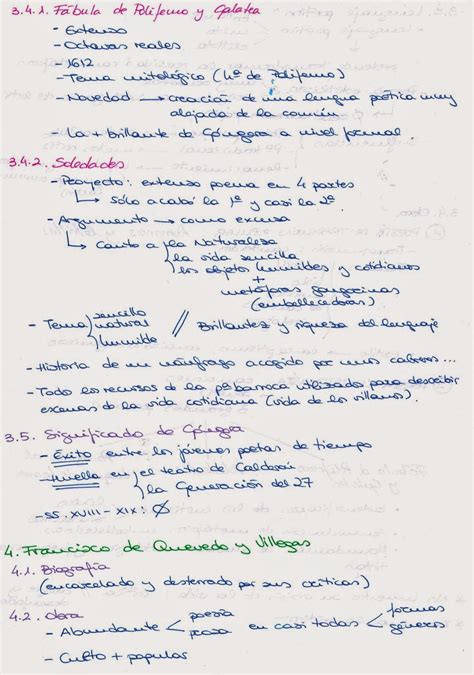 3.4.1. Fábula de Polifemo y Galatea
- Extenso
- Octavas reales
- 1612
- Tema mitológico (hª de Polifemo)
- Novedad → creación de una lengua poética muy
alejada de la común
- la + brillante de Góngora a nivel formal.
3.4.2. Soledades
- Proyecto: extenso poema en 4 partes
↳ Sólo acabó la 1ª y casi la 2ª
- Argumento → como excusa
↳ Canto a la Naturaleza
la vida sencilla
los objetos humildes y cotidianos
+
metáforas gongorinas
(embellecedoras)
- Tema sencillo
natural // Brillantez y riqueza del lenguaje
humilde
- Historia de un náufrago acogido por unos cabreros...
- Todos los recursos de la pª barroca utilizado para describir
escenas de la vida cotidiana (vida de los villanos).
3.5. Significado de Góngora
- Éxito entre los jóvenes poetas de tiempo
- Huella en el teatro de Calderón
la Generación del 27
- SS. XVIII - XIX: Ø
4. Francisco de Quevedo y Villegas
4.1. Biografía
(encarcelado y desterrado por sus críticas)
4.2. Obra
- Abundante < poesía prosa en casi todas < formas géneros
- Culto + popular